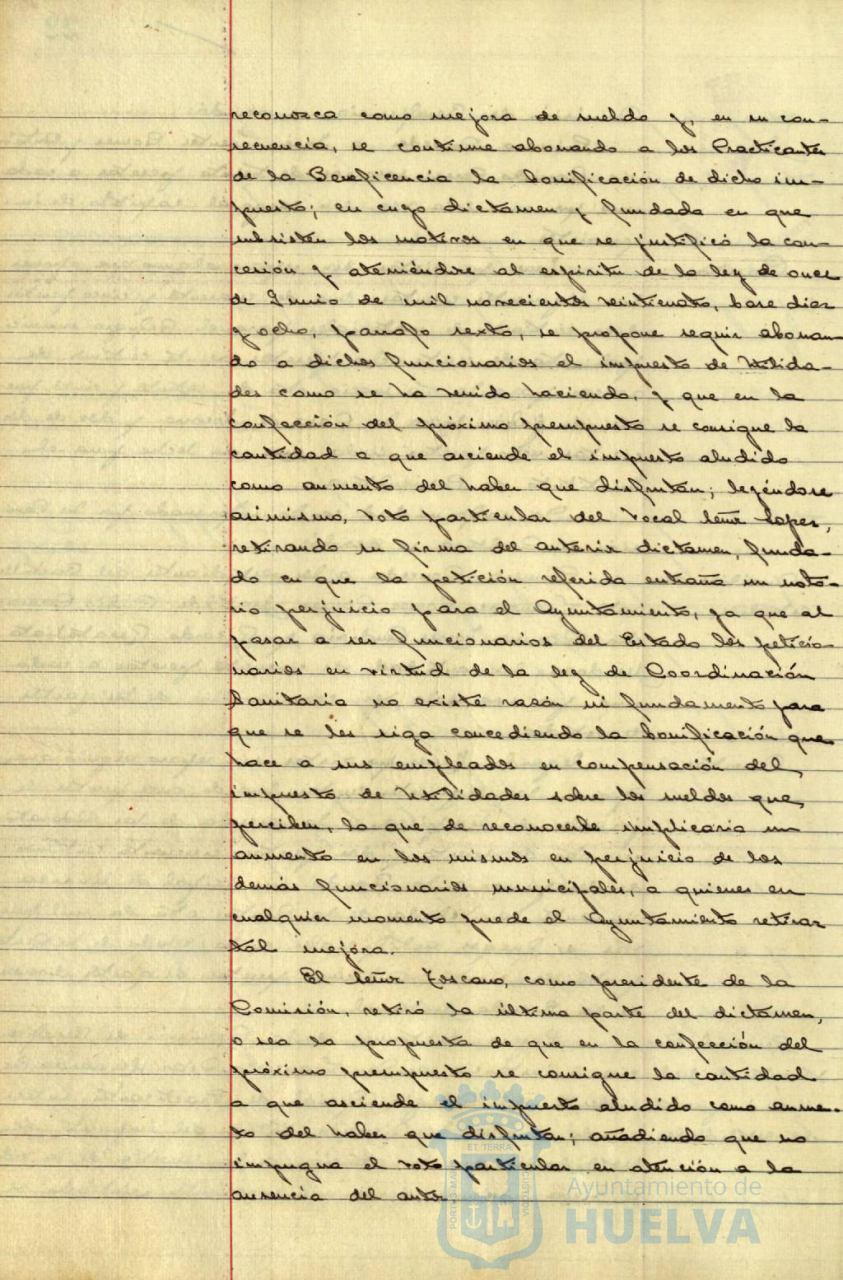 reconozca como mejora de sueldo y, en su con-
secuencia, se continue abonando a los Practicantes
de la Beneficencia la bonificación de dicho im-
puesto; en cuyo dictamen y fundada en que
subsisten los motivos en que se justificó la con-
cesión y ateniéndose al espíritu de la ley de once
de Junio de mil novecientos veinticuatro, base diez
y ocho, párrafo sexto, se propone seguir abonan-
do a dichos funcionarios el impuesto de Utilida-
des como se ha venido haciendo, y que en la
confección del próximo presupuesto se consigne la
cantidad a que asciende el impuesto aludido
como aumento del haber que disfrutan; leyéndose
asimismo, voto particular del Vocal Señor Lopez,
retirando su firma del anterior dictamen, funda-
do en que la petición referida entraña un noto-
rio perjuicio para el Ayuntamiento, ya que al
pasar a ser funcionarios del Estado los peticio-
narios en virtud de la ley de Coordinación
Sanitaria no existe razón ni fundamento para
que se les siga concediendo la bonificación que
hace a sus empleados en compensación del
impuesto de Utilidades sobre los sueldos que
perciben, lo que de reconocerle implicaria un
aumento en los mismos en perjuicio de los
demás funcionarios municipales, a quienes en
cualquier momento puede el Ayuntamiento retirar
tal mejora.
El Señor Toscano, como presidente de la
Comisión, retiró la última parte del dictamen,
o sea la propuesta de que en la confección del
próximo presupuesto se consigne la cantidad
a que asciende el impuesto aludido como aumen-
to del haber que disfrutan; añadiendo que no
impugna el voto particular en atención a la
ausencia del autor.
Ayuntamiento de
HUELVA